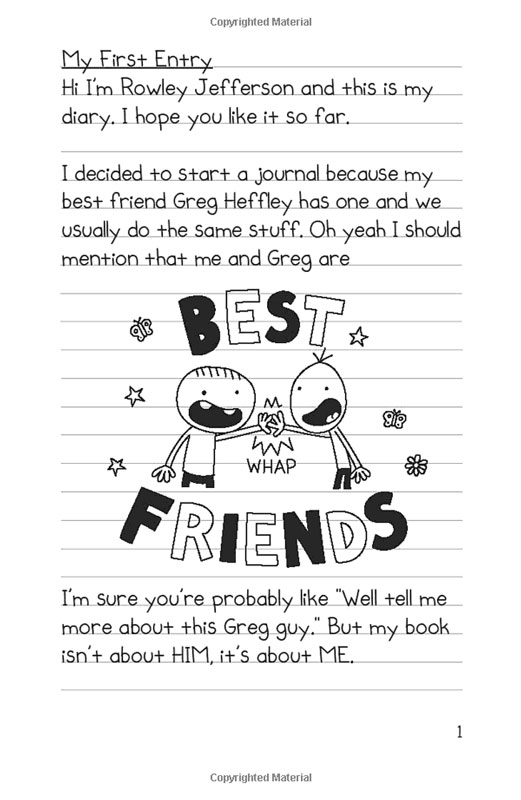 Copyrighted Material
My First Entry
Hi I'm Rowley Jefferson and this is my
diary. I hope you like it so far.
I decided to start a journal because my
best friend Greg Heffley has one and we
usually do the same stuff. Oh yeah I should
mention that me and Greg are
BEST
WHAP
FRIENDS
I'm sure you're probably like "Well tell me
more about this Greg guy." But my book
isn't about HIM, it's about ME.
1
Copyrighted Material